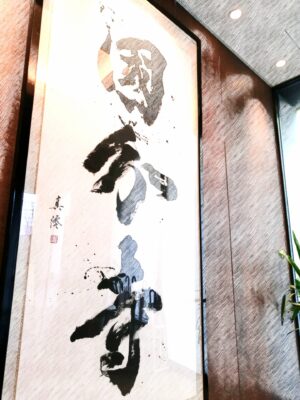 國分寺
真